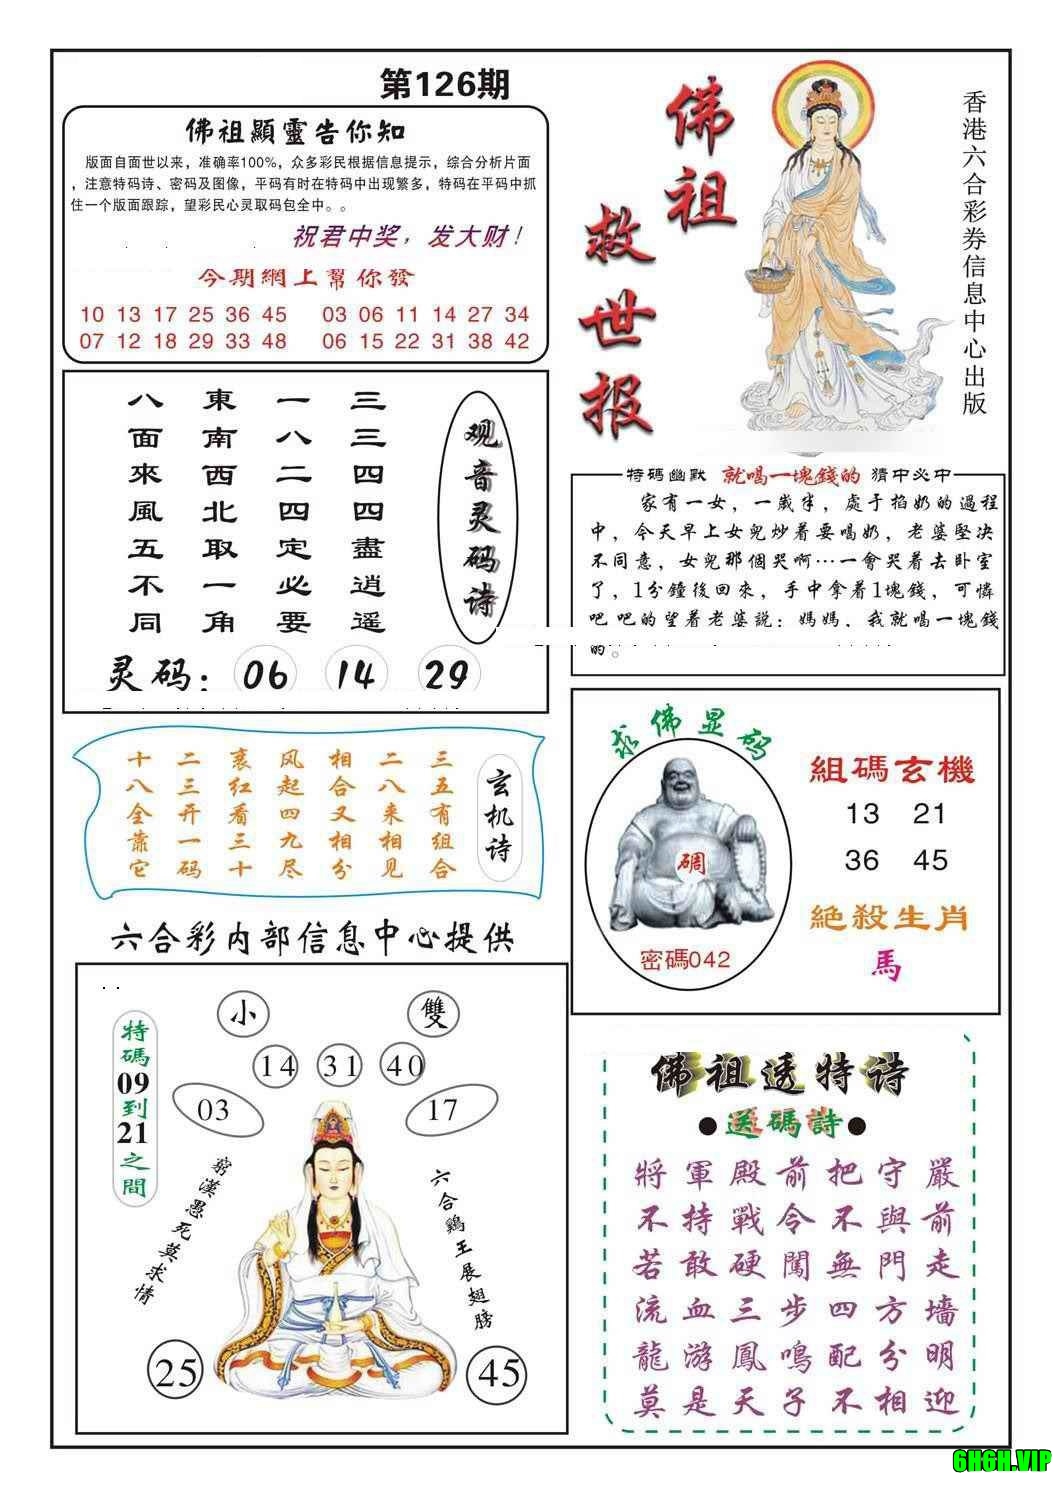 第126期
佛祖顯靈告你知
版面自面世以来，准确率100%，众多彩民根据信息提示，综合分析片面
，注意特码诗、密码及图像，平码有时在特码中出现繁多，特码在平码中抓
住一个版面跟踪，望彩民心灵取码包全中。。
祝君中奖，发大财！
今期網上幫你發
10 13 17 25 36 45 03 06 11 14 27 34
07 12 18 29 33 48 06 15 22 31 38 42
佛祖
救世报
香港六合彩券信息中心出版
观音灵码诗
三三四四盡逍遥
一八二四定必要
東南西北取一角
八面來風五不同
灵码：06 14 29
特碼幽默 就喝一塊錢的 猜中必中
家有一女，一歲半，處于掐奶的過程
中，今天早上女兒炒着要喝奶，老婆堅决
不同意，女兒那個哭啊…一會哭着去卧室
了，1分鐘後回來，手中拿着1塊錢，可憐
吧吧的望着老婆説：媽媽，我就喝一塊錢
的。
玄机诗
三五有组合
二八来相见
相合又相分
风起四九尽
裹红看三十
二三开一码
十八全靠它
求佛显码
碉
密碼042
組碼玄機
13 21
36 45
絶殺生肖
馬
六合彩内部信息中心提供
特碼09到21之間
小
雙
14 31 40
03 17
窮漢愚死莫求情
六合鷄王展翅膀
25 45
佛祖透特诗
●送碼詩●
將軍殿前把守嚴
不持戰令不與前
若敢硬闖無門走
流血三步四方墻
龍游鳳鳴配分明
莫是天子不相迎
6H6H.VIP